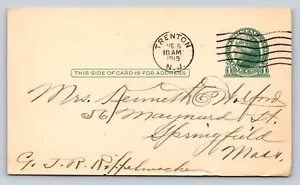 TRENTON
DEC 6
10 AM
1919
N.J.
THIS SIDE OF CARD IS FOR ADDRESS
Mrs. Kenneth Wilford
56 Maynard St.
Springfield
Mass.
G. J. R.